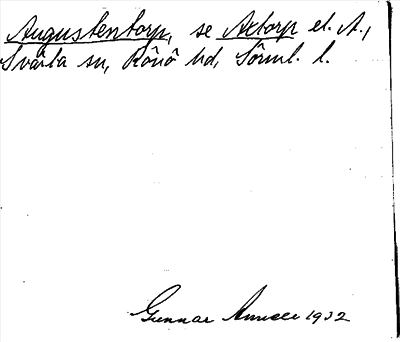 Augustentorp, se Axtorp el. A.,
Svärta sn, Rönö hd, Sörml. l.
Gunnar 1932